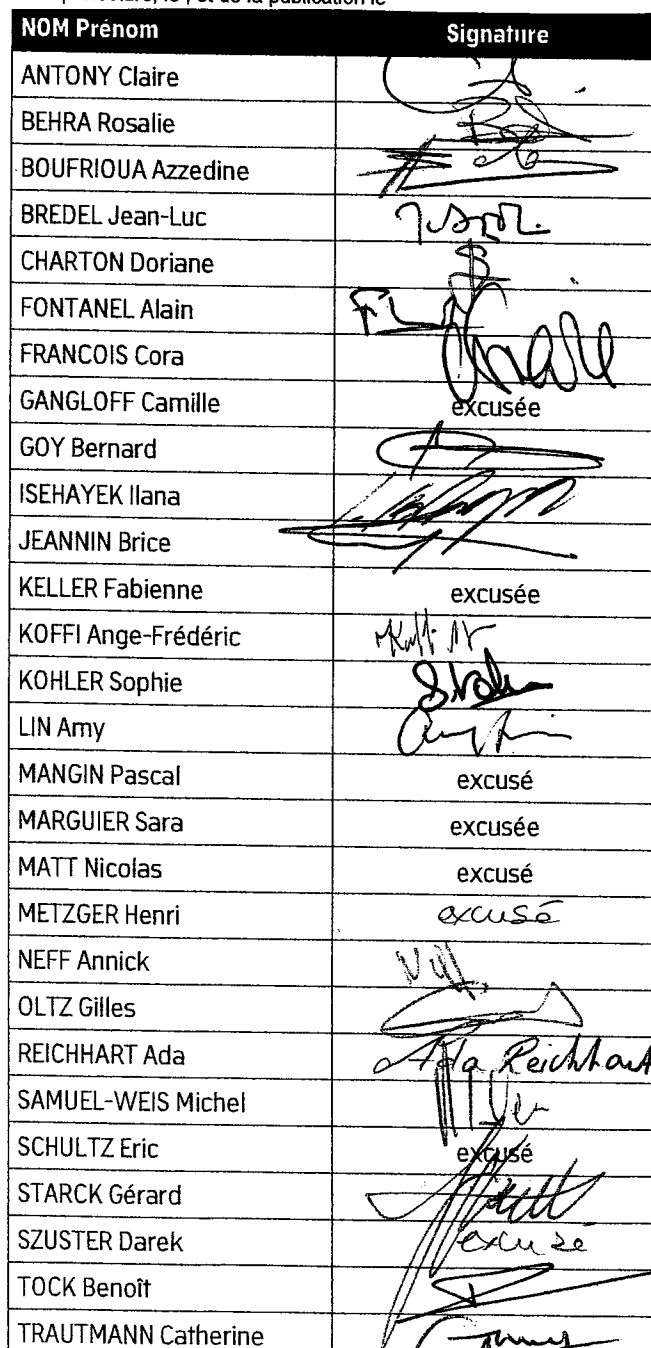 NOM Prénom Signature
ANTONY Claire
BEHRA Rosalie
BOUFRIOUA Azzedine
BREDEL Jean-Luc
CHARTON Doriane
FONTANEL Alain
FRANCOIS Cora
GANGLOFF Camille excusée
GOY Bernard
ISEHAYEK Ilana
JEANNIN Brice
KELLER Fabienne excusée
KOFFI Ange-Frédéric
KOHLER Sophie
LIN Amy
MANGIN Pascal excusé
MARGUIER Sara excusée
MATT Nicolas excusé
METZGER Henri excusé
NEFF Annick
OLTZ Gilles
REICHHART Ada Ada Reichhart
SAMUEL-WEIS Michel
SCHULTZ Eric excusé
STARCK Gérard
SZUSTER Darek excusé
TOCK Benoît
TRAUTMANN Catherine